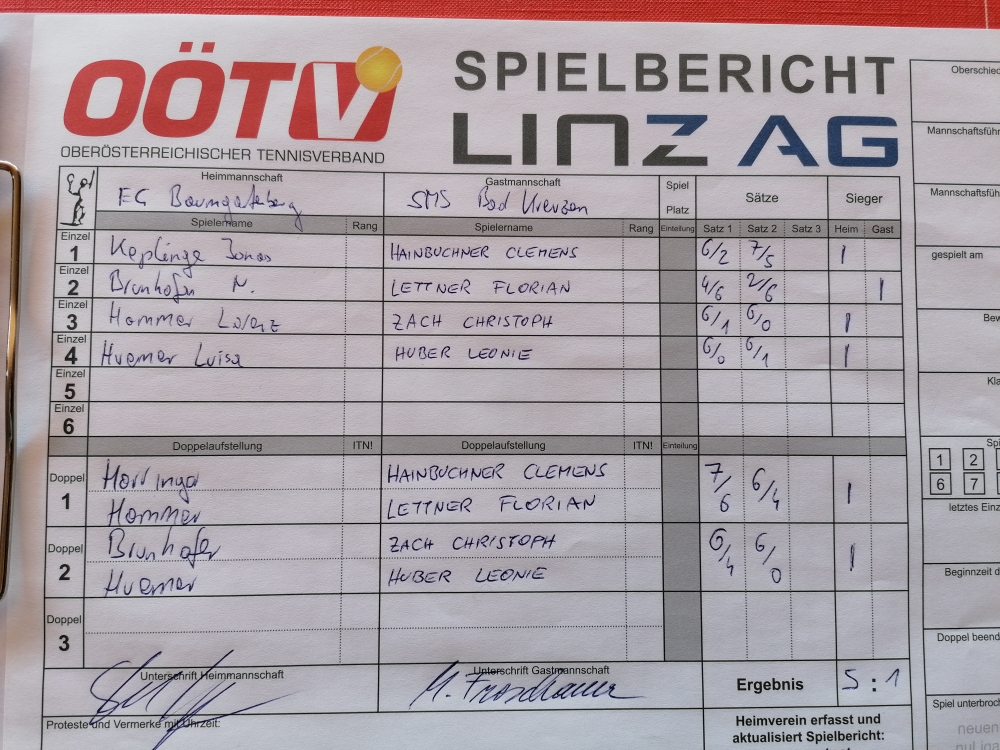 OÖTV
OBERÖSTERREICHISCHER TENNISVERBAND
SPIELBERICHT
LINZ AG
Heimmannschaft Gastmannschaft Spiel Platz Sätze Sieger
EG Baumgartenberg SMS Bad Kreuzen
Spielername Rang Spielername Rang Einteilung Satz 1 Satz 2 Satz 3 Heim Gast
Einzel 1 Keplinge Jonas HAINBUCHNER CLEMENS 6/2 7/5 I
Einzel 2 Brunhofer N. LETTNER FLORIAN 4/6 2/6 I
Einzel 3 Hammer Lorenz ZACH CHRISTOPH 6/1 6/0 I
Einzel 4 Huemer Luisa HUBER LEONIE 6/0 6/1 I
Einzel 5
Einzel 6
Doppelaufstellung ITN! Doppelaufstellung ITN! Einteilung
Doppel 1 HAINBUCHNER CLEMENS 7/6 6/4 I
Hammer LETTNER FLORIAN
Doppel 2 Brunhofer ZACH CHRISTOPH 6/4 6/0 I
Huemer HUBER LEONIE
Doppel 3
Unterschrift Heimmannschaft Unterschrift Gastmannschaft Ergebnis 5:1
Proteste und Vermerke mit Uhrzeit:
Heimverein erfasst und
aktualisiert Spielbericht:
Oberschied
Mannschaftsführ
Mannschaftsfüh
gespielt am
Bew
Kla
Spi
1 2
6 7
letztes Einz
Beginnzeit d
Doppel beend
Spiel unterbroch
neuen